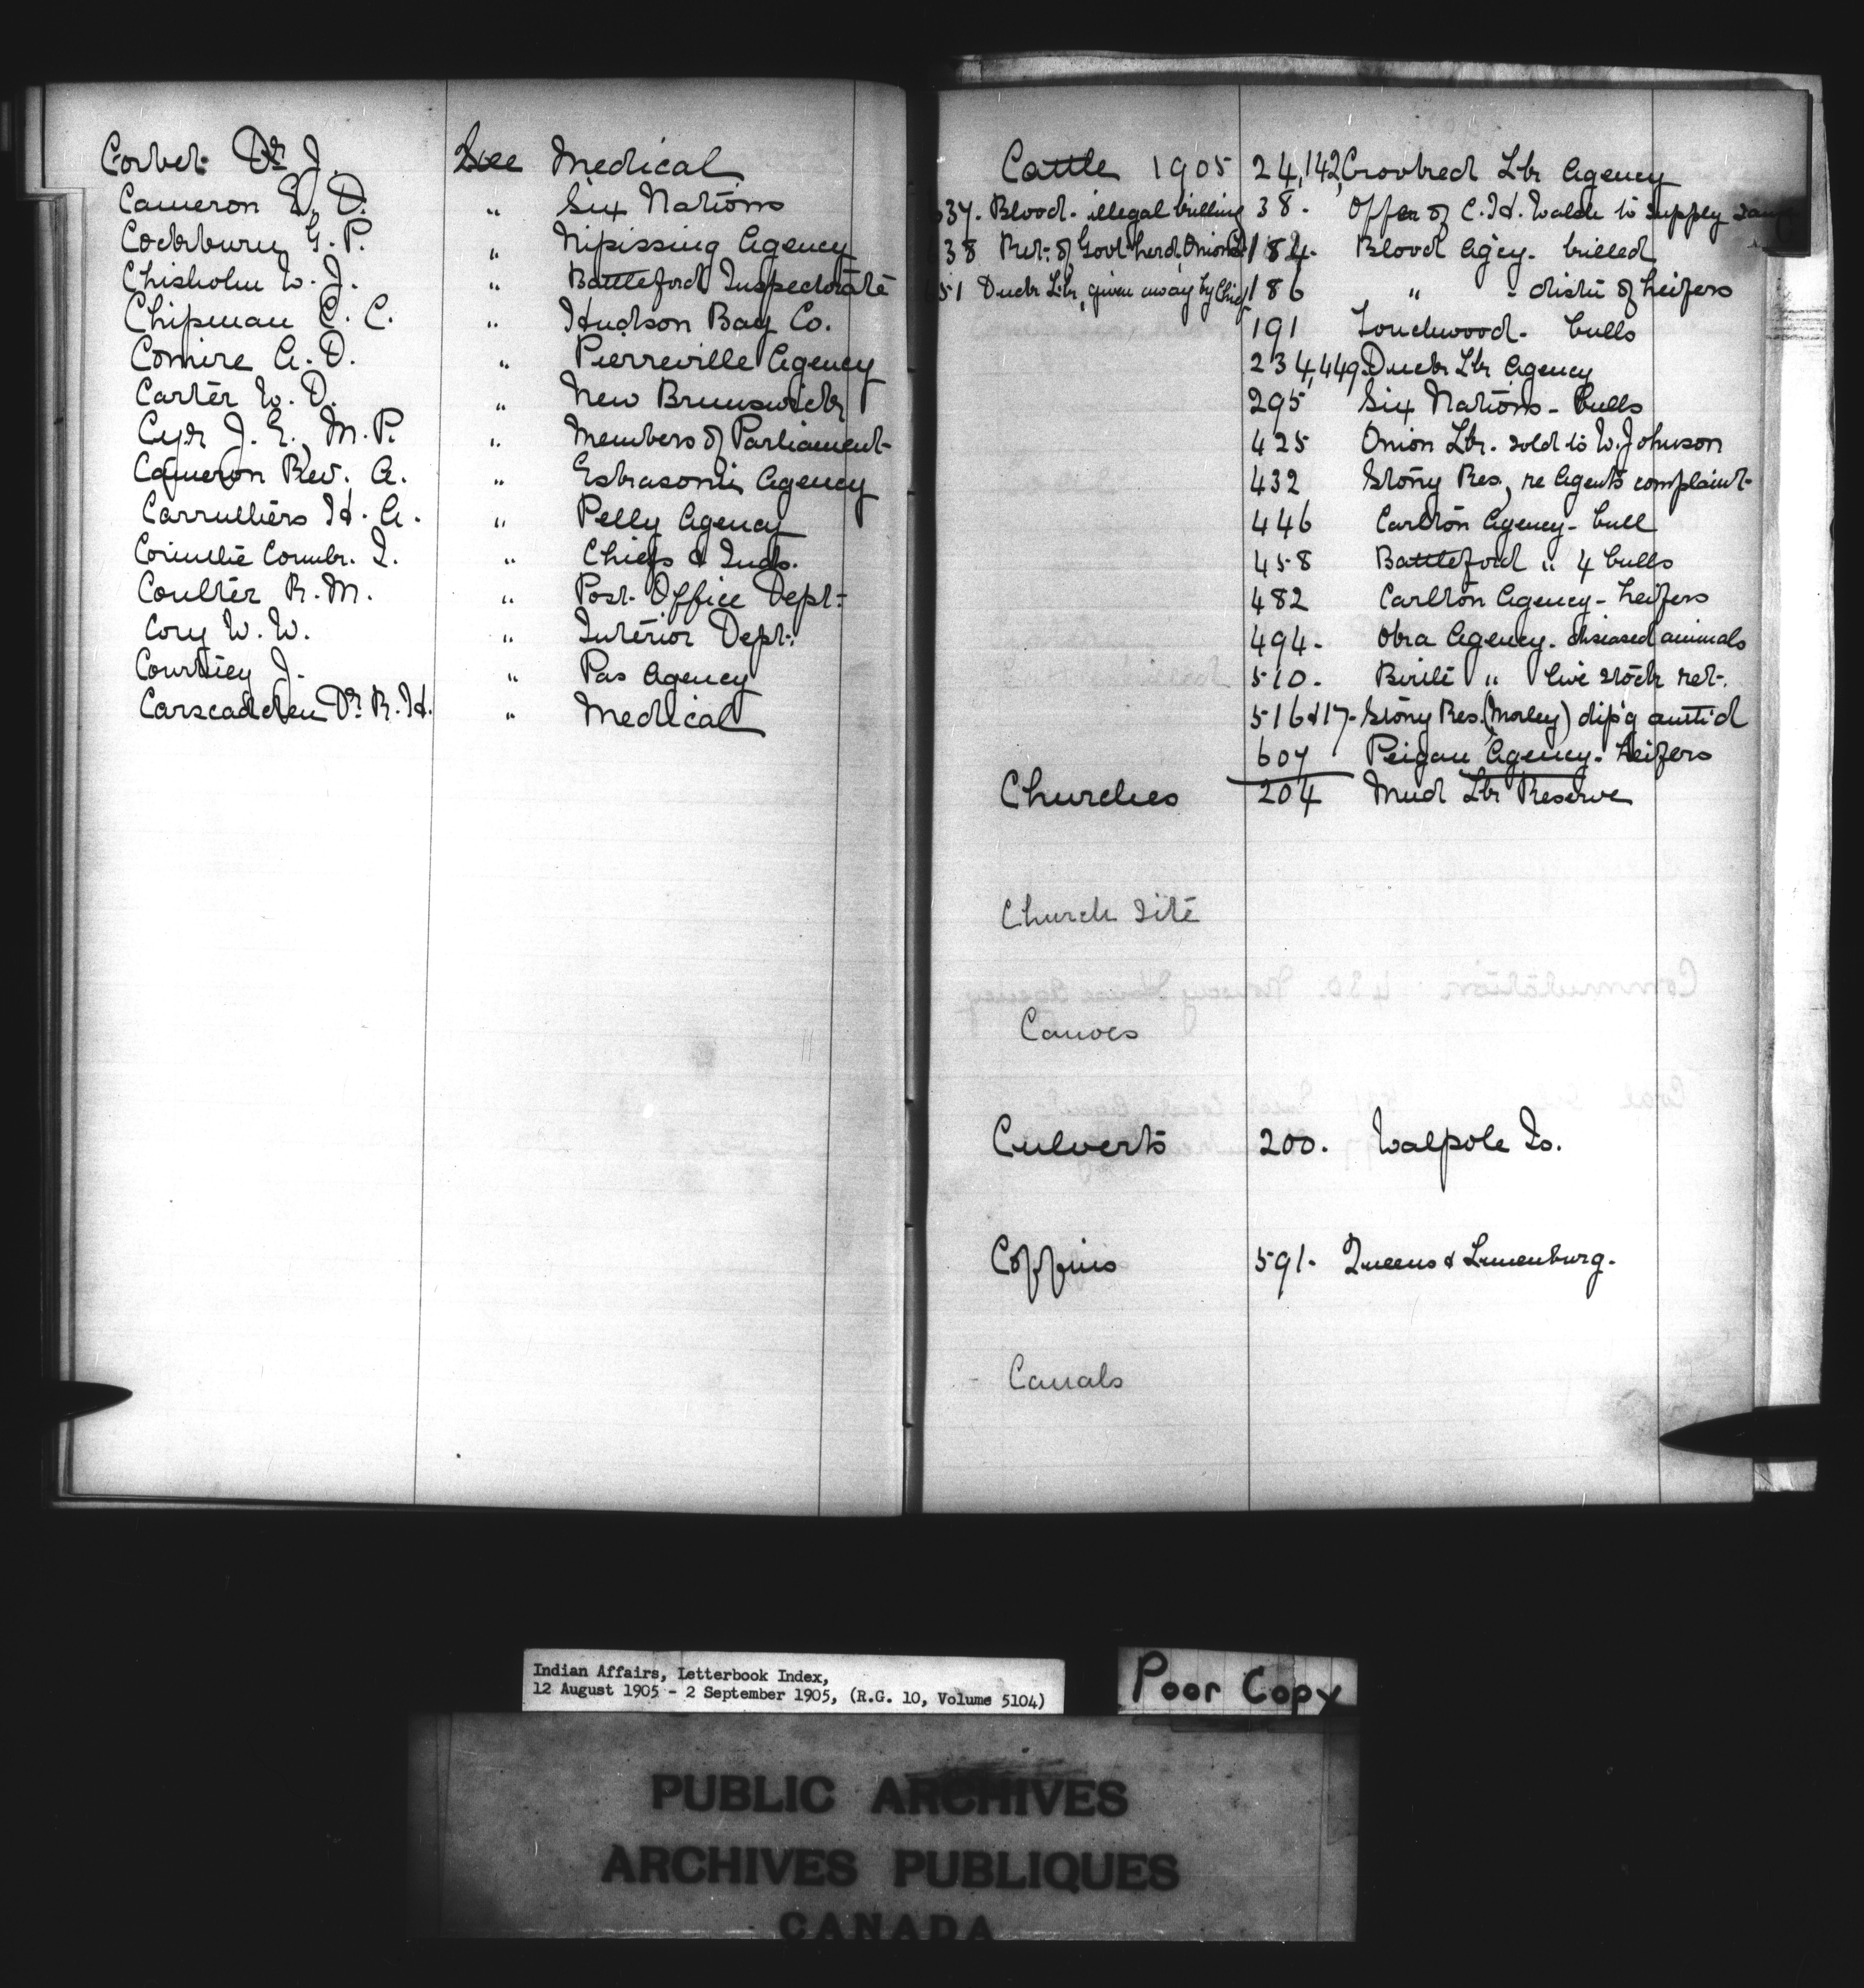 Corbet Dr J. See Medical
Cameron E. D. " Six Nations
Cockburn G. P. " Nipissing Agency
Chisholm W. J. " Battleford Inspectorate
Chipman C. C. " Hudson Bay Co.
Comire A. O. " Pierreville Agency
Carter W. D. " New Brunswick
Cyr J. E., M.P. " Members of Parliament
Cameron Rev. A. " Eskasoni Agency
Carruthers H. A. " Pelly Agency
Corinthe Combr. I. " Chiefs & Inds.
Coulter R. M. " Post Office Dept:
Cory W. W. " Interior Dept:
Courtney J. " Pas Agency
Carscadden Dr R. H. " Medical
Cattle 1905 24,142, Crooked Lk Agency
637. Blood. illegal killing 38. Offer of C. H. Walsh to supply same
638 Ret: of Govt herd, Onion Lk 184. Blood Agcy. killed
651 Duck Lk, given away by Chief 186 " - distn of heifers
191 Touchwood - bulls
234,449. Duck Lk Agency
295 Six Nations - bulls
425 Onion Lk. sold to W. Johnson
432 Stony Res, re Agents complaint
446 Carlton Agency - bull
458 Battleford " 4 bulls
482 Carlton Agency - heifers
494. Oka Agency. diseased animals
510. Birtle " live stock ret.
516 & 17. Stony Res. (Morley) dip'g auth'd
607 Peigan Agency. heifers
Churches 204 Mud Lk Reserve
Church site
Canoes
Culverts 200. Walpole Is.
Coffins 591. Queens & Lunenburg.
Canals
Indian Affairs, Letterbook Index,
12 August 1905 - 2 September 1905, (R.G. 10, Volume 5104)
Poor Copy
PUBLIC ARCHIVES
ARCHIVES PUBLIQUES
CANADA